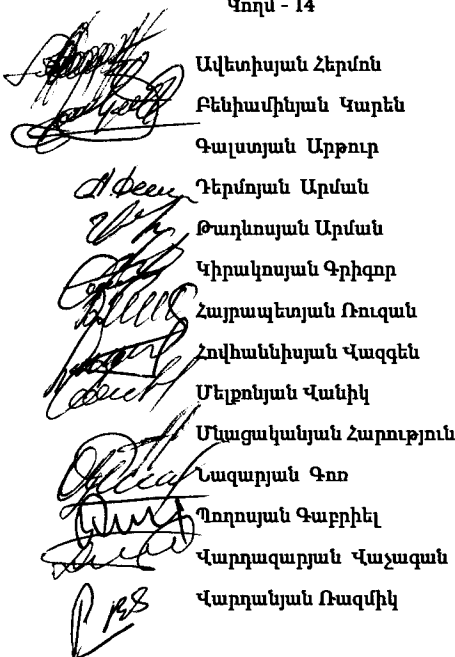 Կողմ - 14
Ավետիսյան Հերմոն
Բենիամինյան Կարեն
Գալստյան Արթուր
Դերմոյան Արման
Թադևոսյան Արման
Կիրակոսյան Գրիգոր
Հայրապետյան Ռուզան
Հովհաննիսյան Վազգեն
Մելքոնյան Վանիկ
Մնացականյան Հարություն
Նազարյան Գոռ
Պողոսյան Գաբրիել
Վարդազարյան Վաչագան
Վարդանյան Ռազմիկ